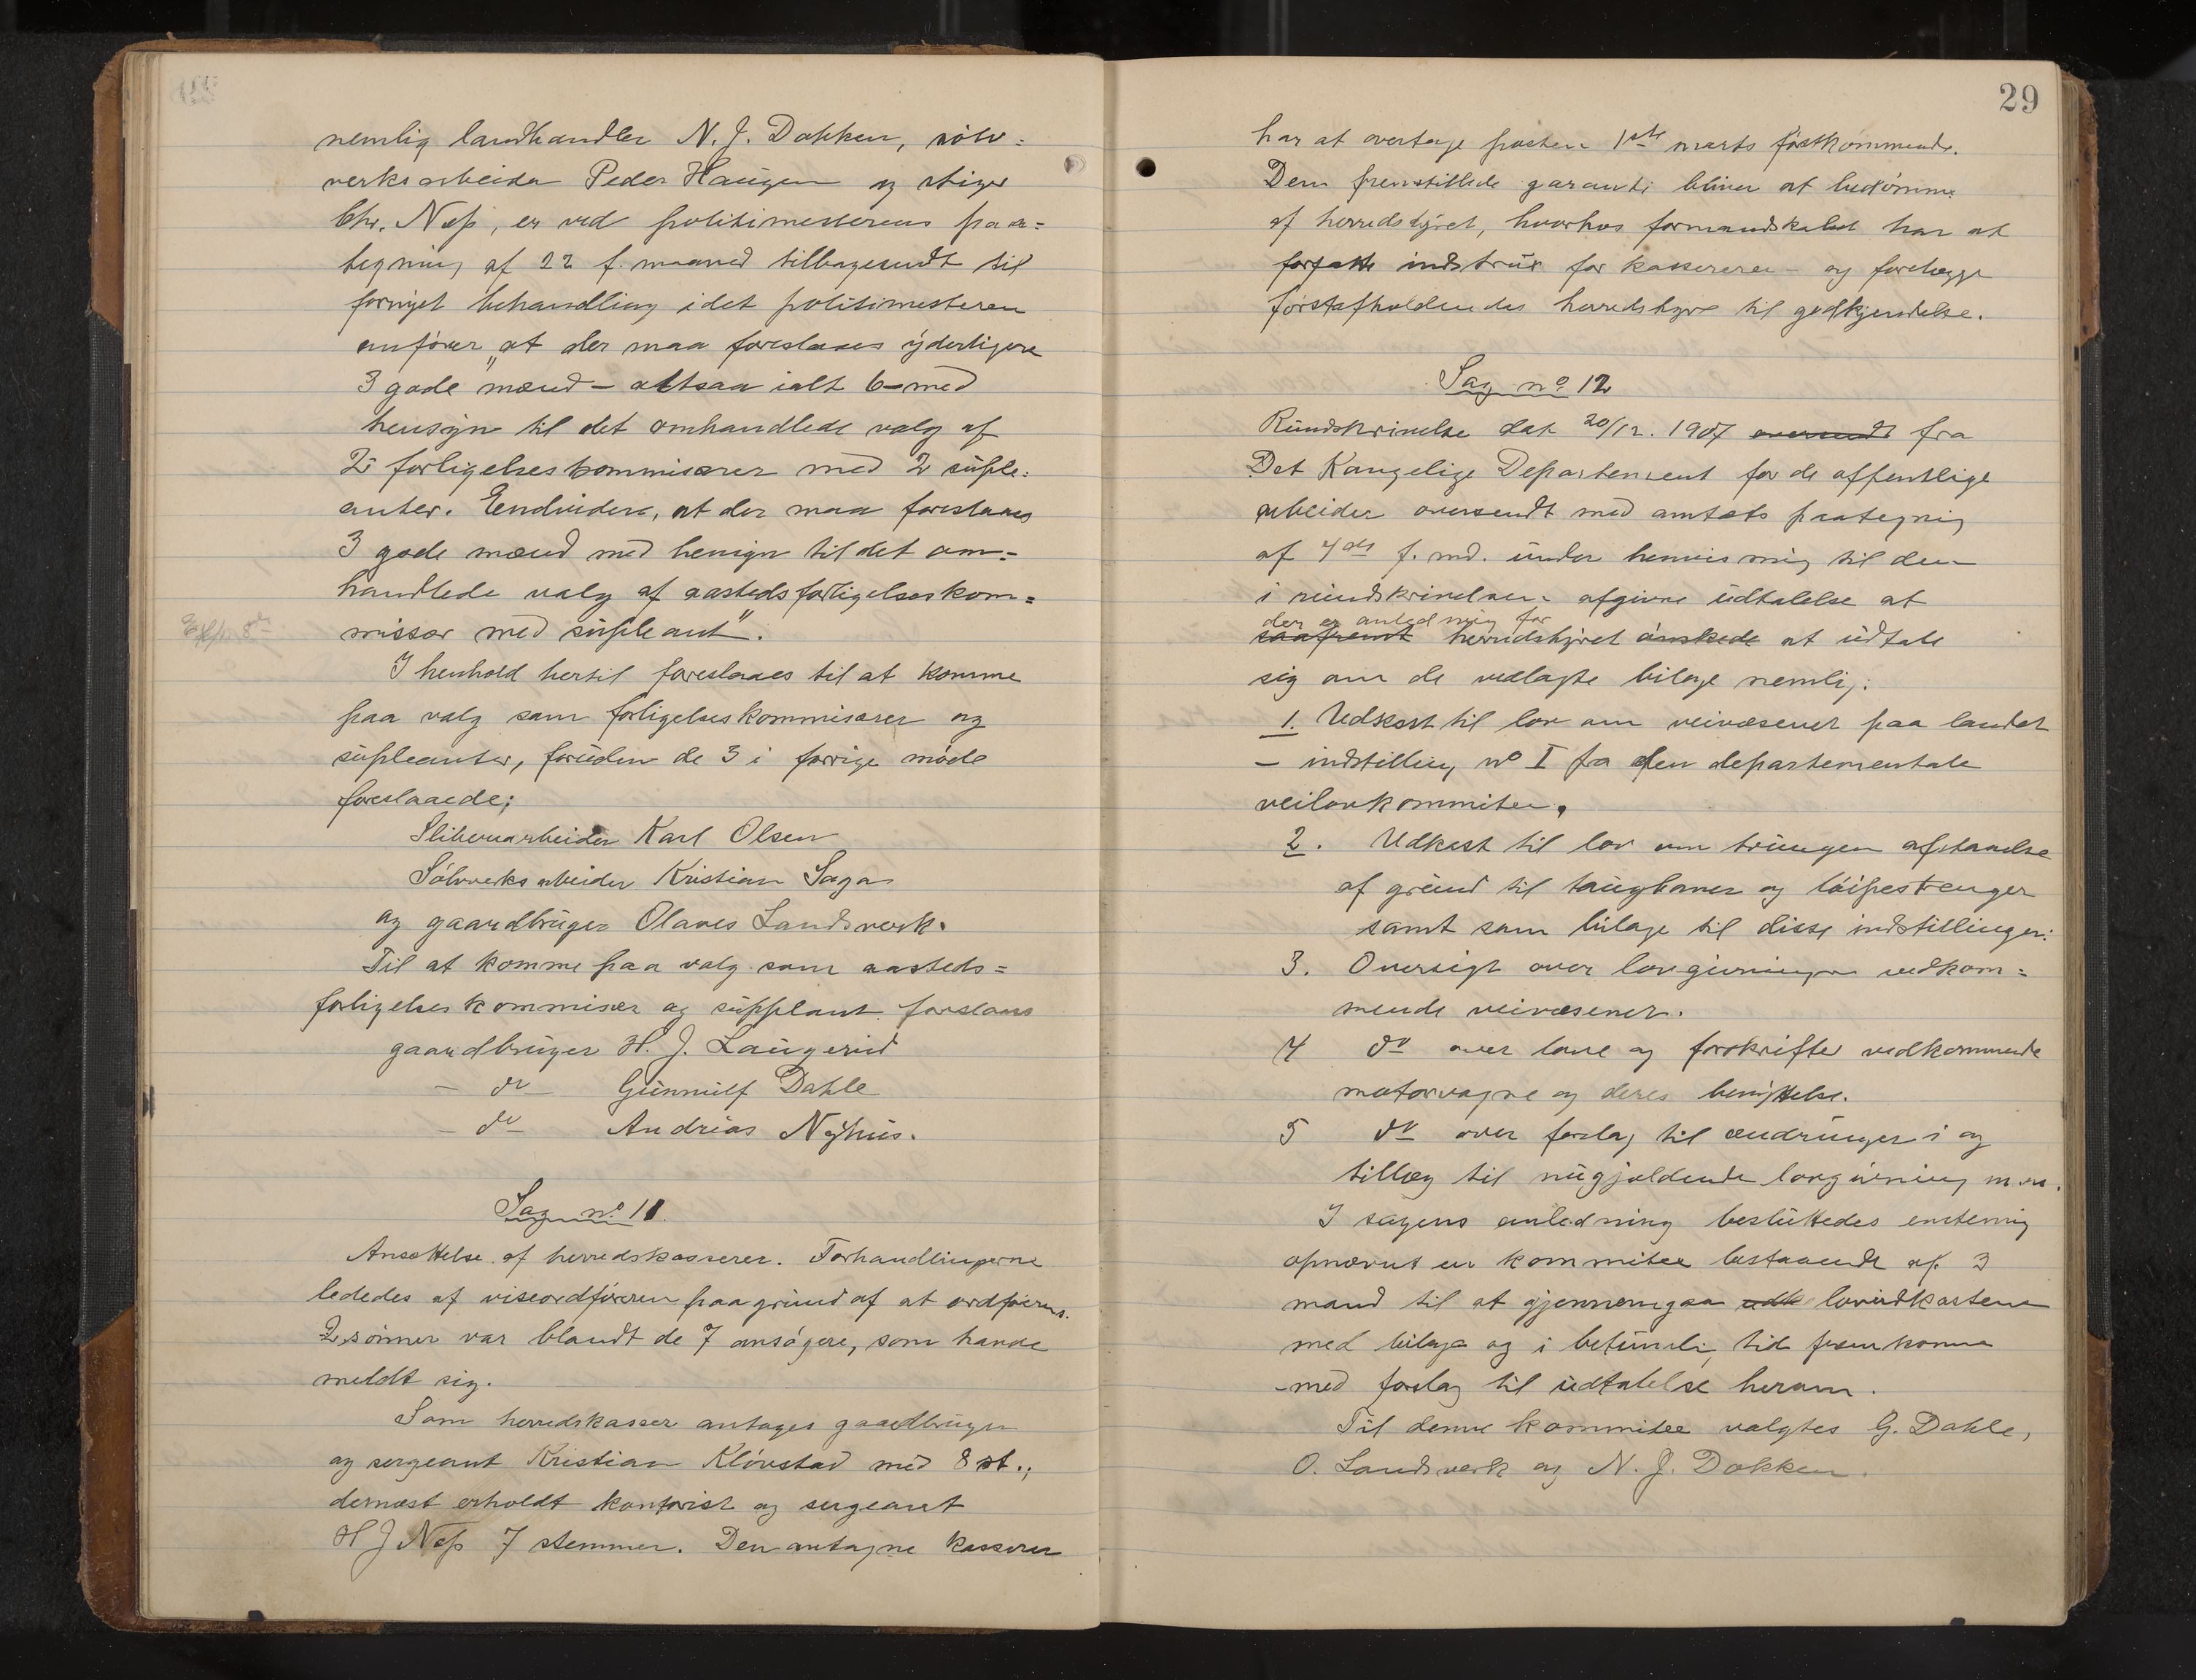 nemlig landhandler N. J. Dokken, sølv=
verksarbeider Peder Haugen og stiger
Chr. Næss, er ved politimesterens paa=
tegning af 22 f. maaned tilbagesendt til
fornyet behandling idet politimesteren
anfører "at der maa foreslaaes yderligere
3 gode mænd – altsaa ialt 6 – med
hensyn til det omhandlede valg af
2 forligelseskommisærer med 2 suple=
anter. Endvidere, at der maa foreslaaes
3 gode mænd med hensyn til det om=
handlede valg af aastedsforligelseskom=
missær med supleant".
I henhold hertil foreslaaes til at komme
paa valg som forligelseskommisærer og
supleanter, foruden de 3 i forrige møde
foreslaaede;
Sliberiarbeider Karl Olsen
Sølvverksarbeider Kristian Saga
og gaardbruger Olaves Landsverk.
Til at komme paa valg som aasteds=
forligelseskommisær og supplant foreslaaes
gaardbruger H. J. Laugerud
– do – Gunnulf Dahle
– do Andreas Nyhus.
Sag no 11.
Ansættelse af herredskasserer. Forhandlingerne
lededes af viseordføreren paa grund af at ordførerens
2 sønner var blandt de 7 ansøgere, som havde
meldt sig.
Som herredskasser antages gaardbruger
og sergeant Kristian Kløvstad med 8 st.;
dernæst erholdt kontorist og sergeant
H J Næss 7 stemmer. Den antagne kasserer
29
har at overtage posten 1ste marts førstkommende.
Den fremstillede garanti bliver at bedømme
af herredstyret, hvorhos formandskabet har at
forfatte instrux for kassereren – og forelægge
førstafholdendes herredstyre til godkjendelse.
Sag no 12
Rundskrivelse dat 20/12. 1907 oversendt fra
Det Kongelige Departement for de offentlige
arbeider oversendt med amtets paategning
af 4de f. md. under henvisning til den
i rundskrivelsen afgivne udtalelse at
der er anledning for
saafremt herredstyret ønskede at udtale
sig om de vedlagte bilage nemlig:
1. Udkast til lov om veivæsenet paa landet
– indstilling no I fra den departementale
veilovkommiteen.
2. Udkast til lov om tvungen afstaaelse
af grund til taugbaner og løipestrenger
samt som bilage til disse indstillinger:
3. Oversigt over lovgivningen vedkom=
mende veivæsenet.
4 do over love og forskrifter vedkommende
motorvagne og deres benyttelse.
5 do over forslag til ændringer i og
tillæg til nugjældende lovgivning m.m.
I sagens anledning besluttedes enstemig
opnævnt en kommitee bestaaende af 3
mand til at gjennemgaa udk lovudkastene
med bilage og i betimelig tid fremkomme
med forslag til udtalelse herom.
Til denne kommitee valgtes G. Dahle,
O. Landsverk og N. J. Dokken.